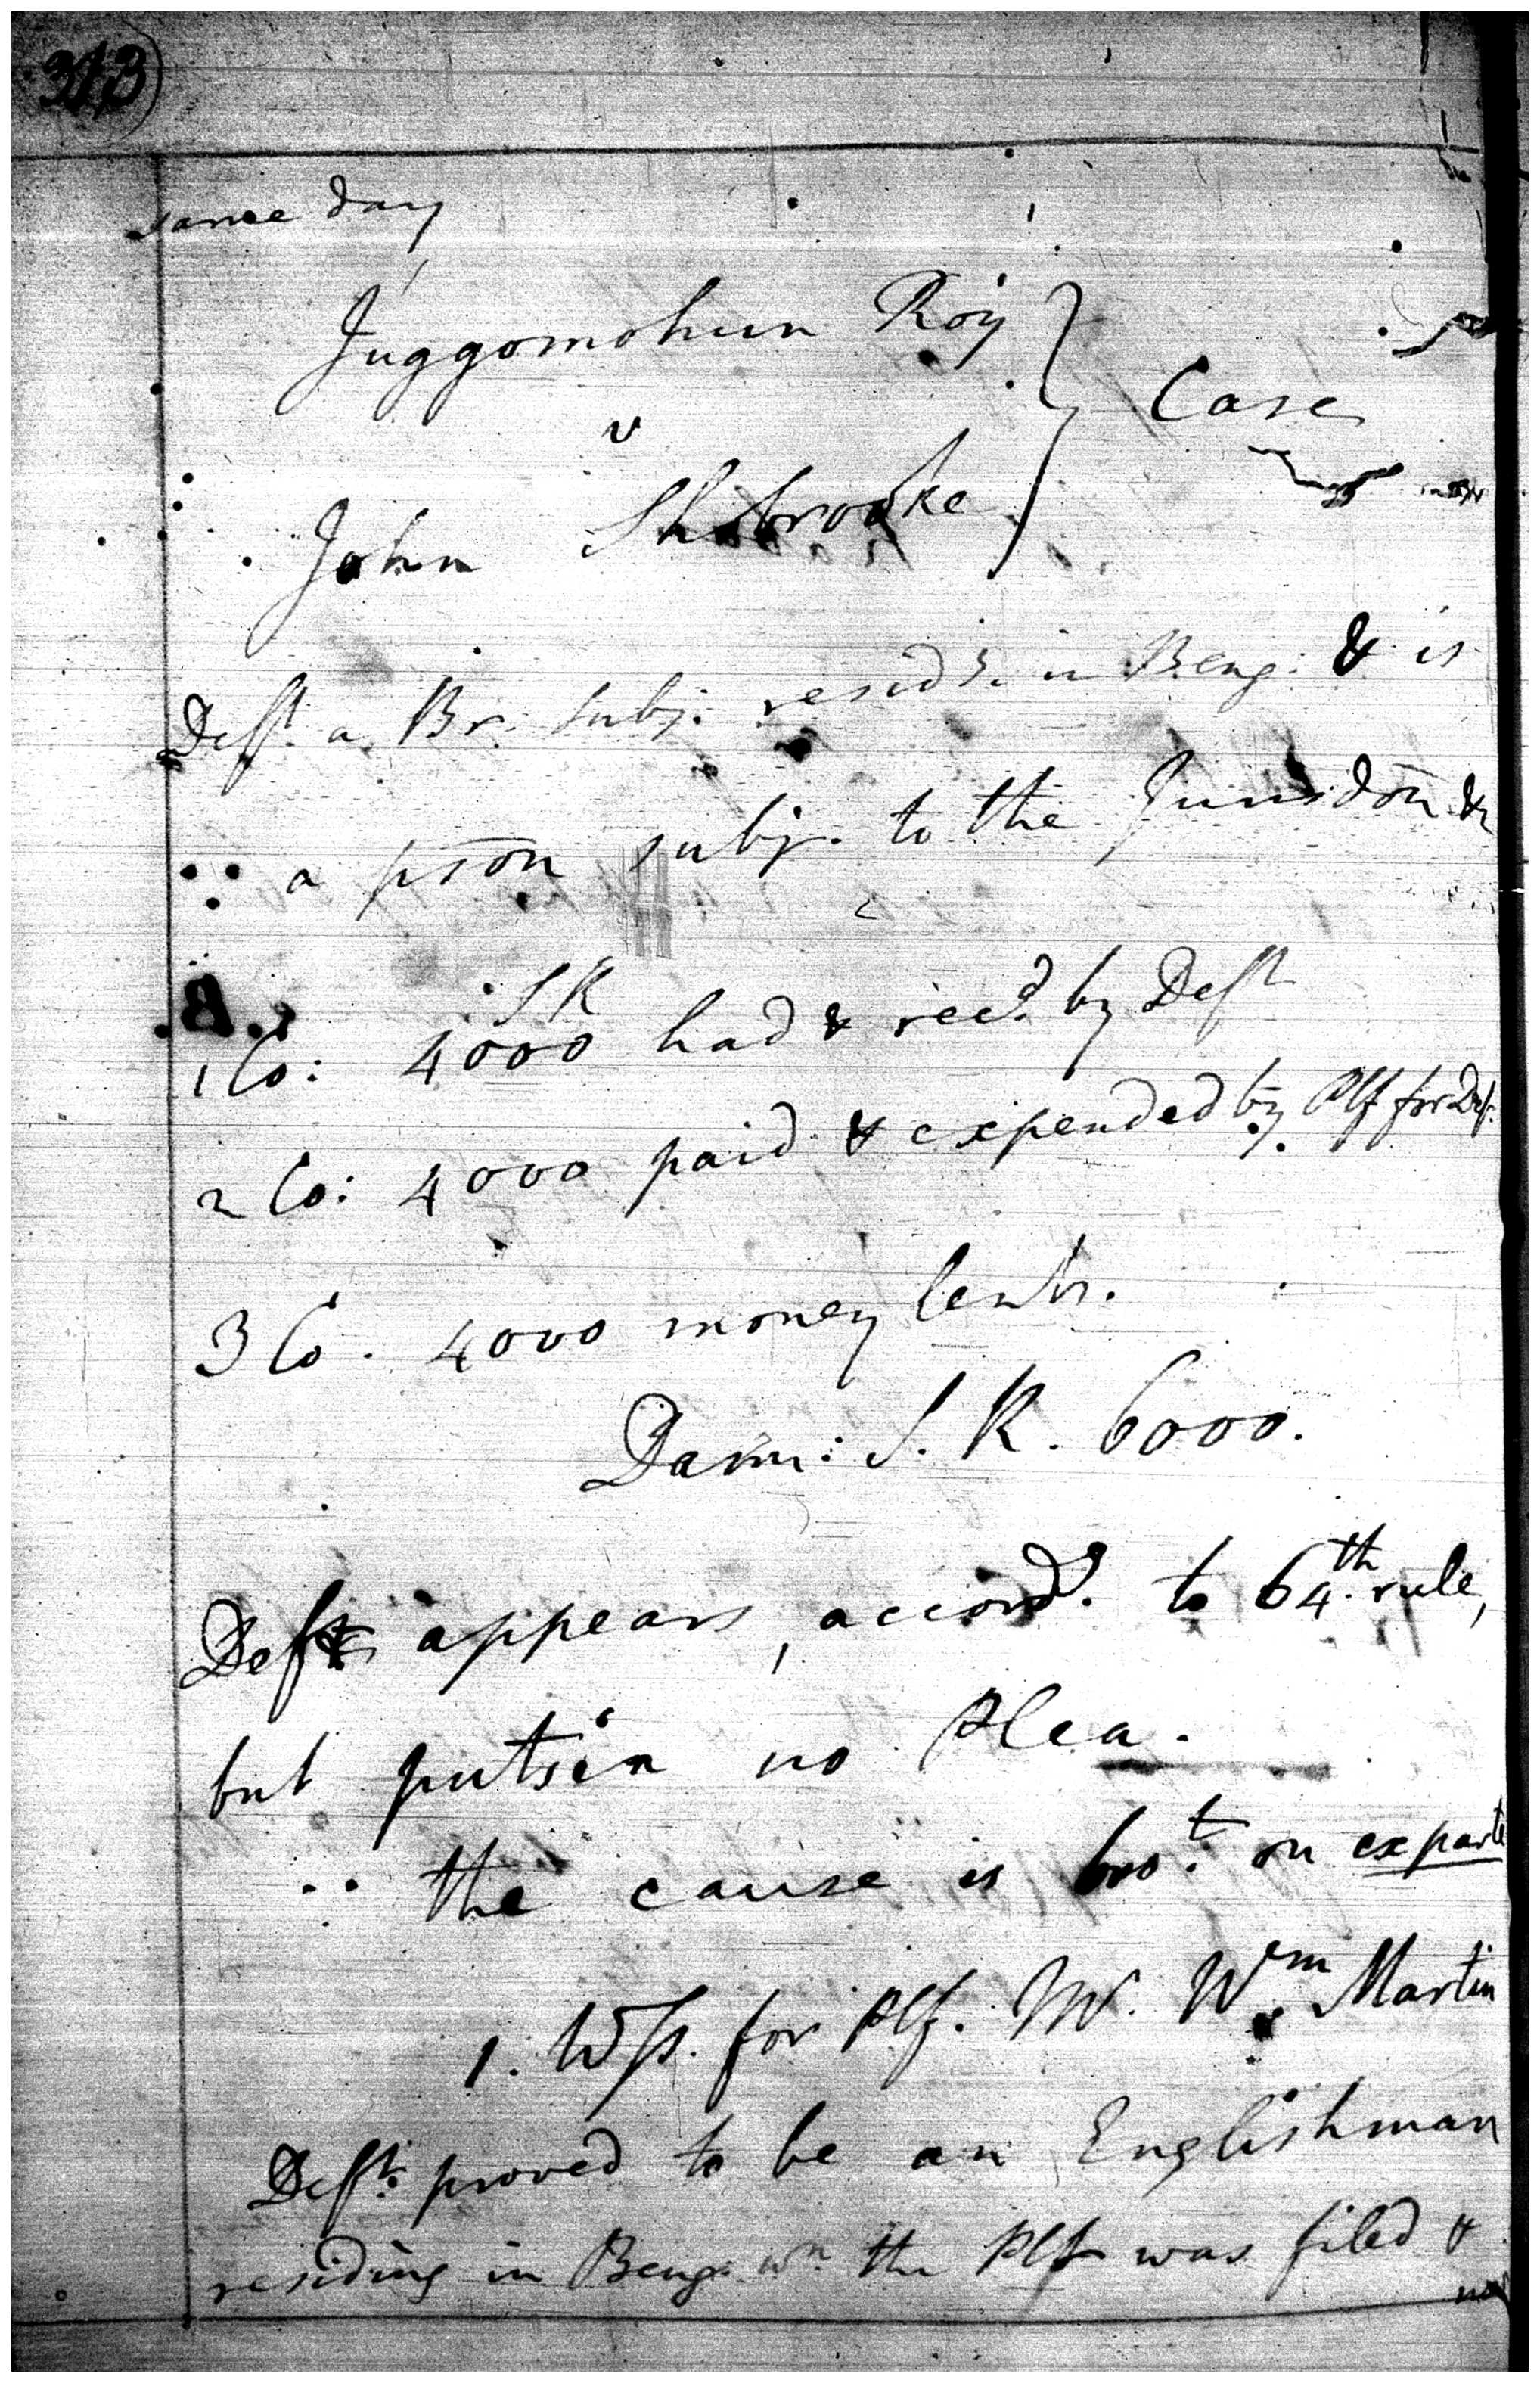 same day
Juggomohun Roy
v
Case
John Shobrooke
Deft. a Br. subj. resid.g in Beng: & is
a pson subj. to the Jurisdon &
S R
1 Co: 4000 had & recd. by Deft
2 Co: 4000 paid & expended by Plf for Def.
3 Co. 4000 money lent.
Dam: S. R. 6000.
Deft appears, accord.g to 64th. rule,
but puts in no Plea.
the cause is bro.t on exparte
1. Wss. for Plf. Mr. Wm. Martin
Deft. proved to be an Englishman
residing in Beng. wn. the Plt was filed &